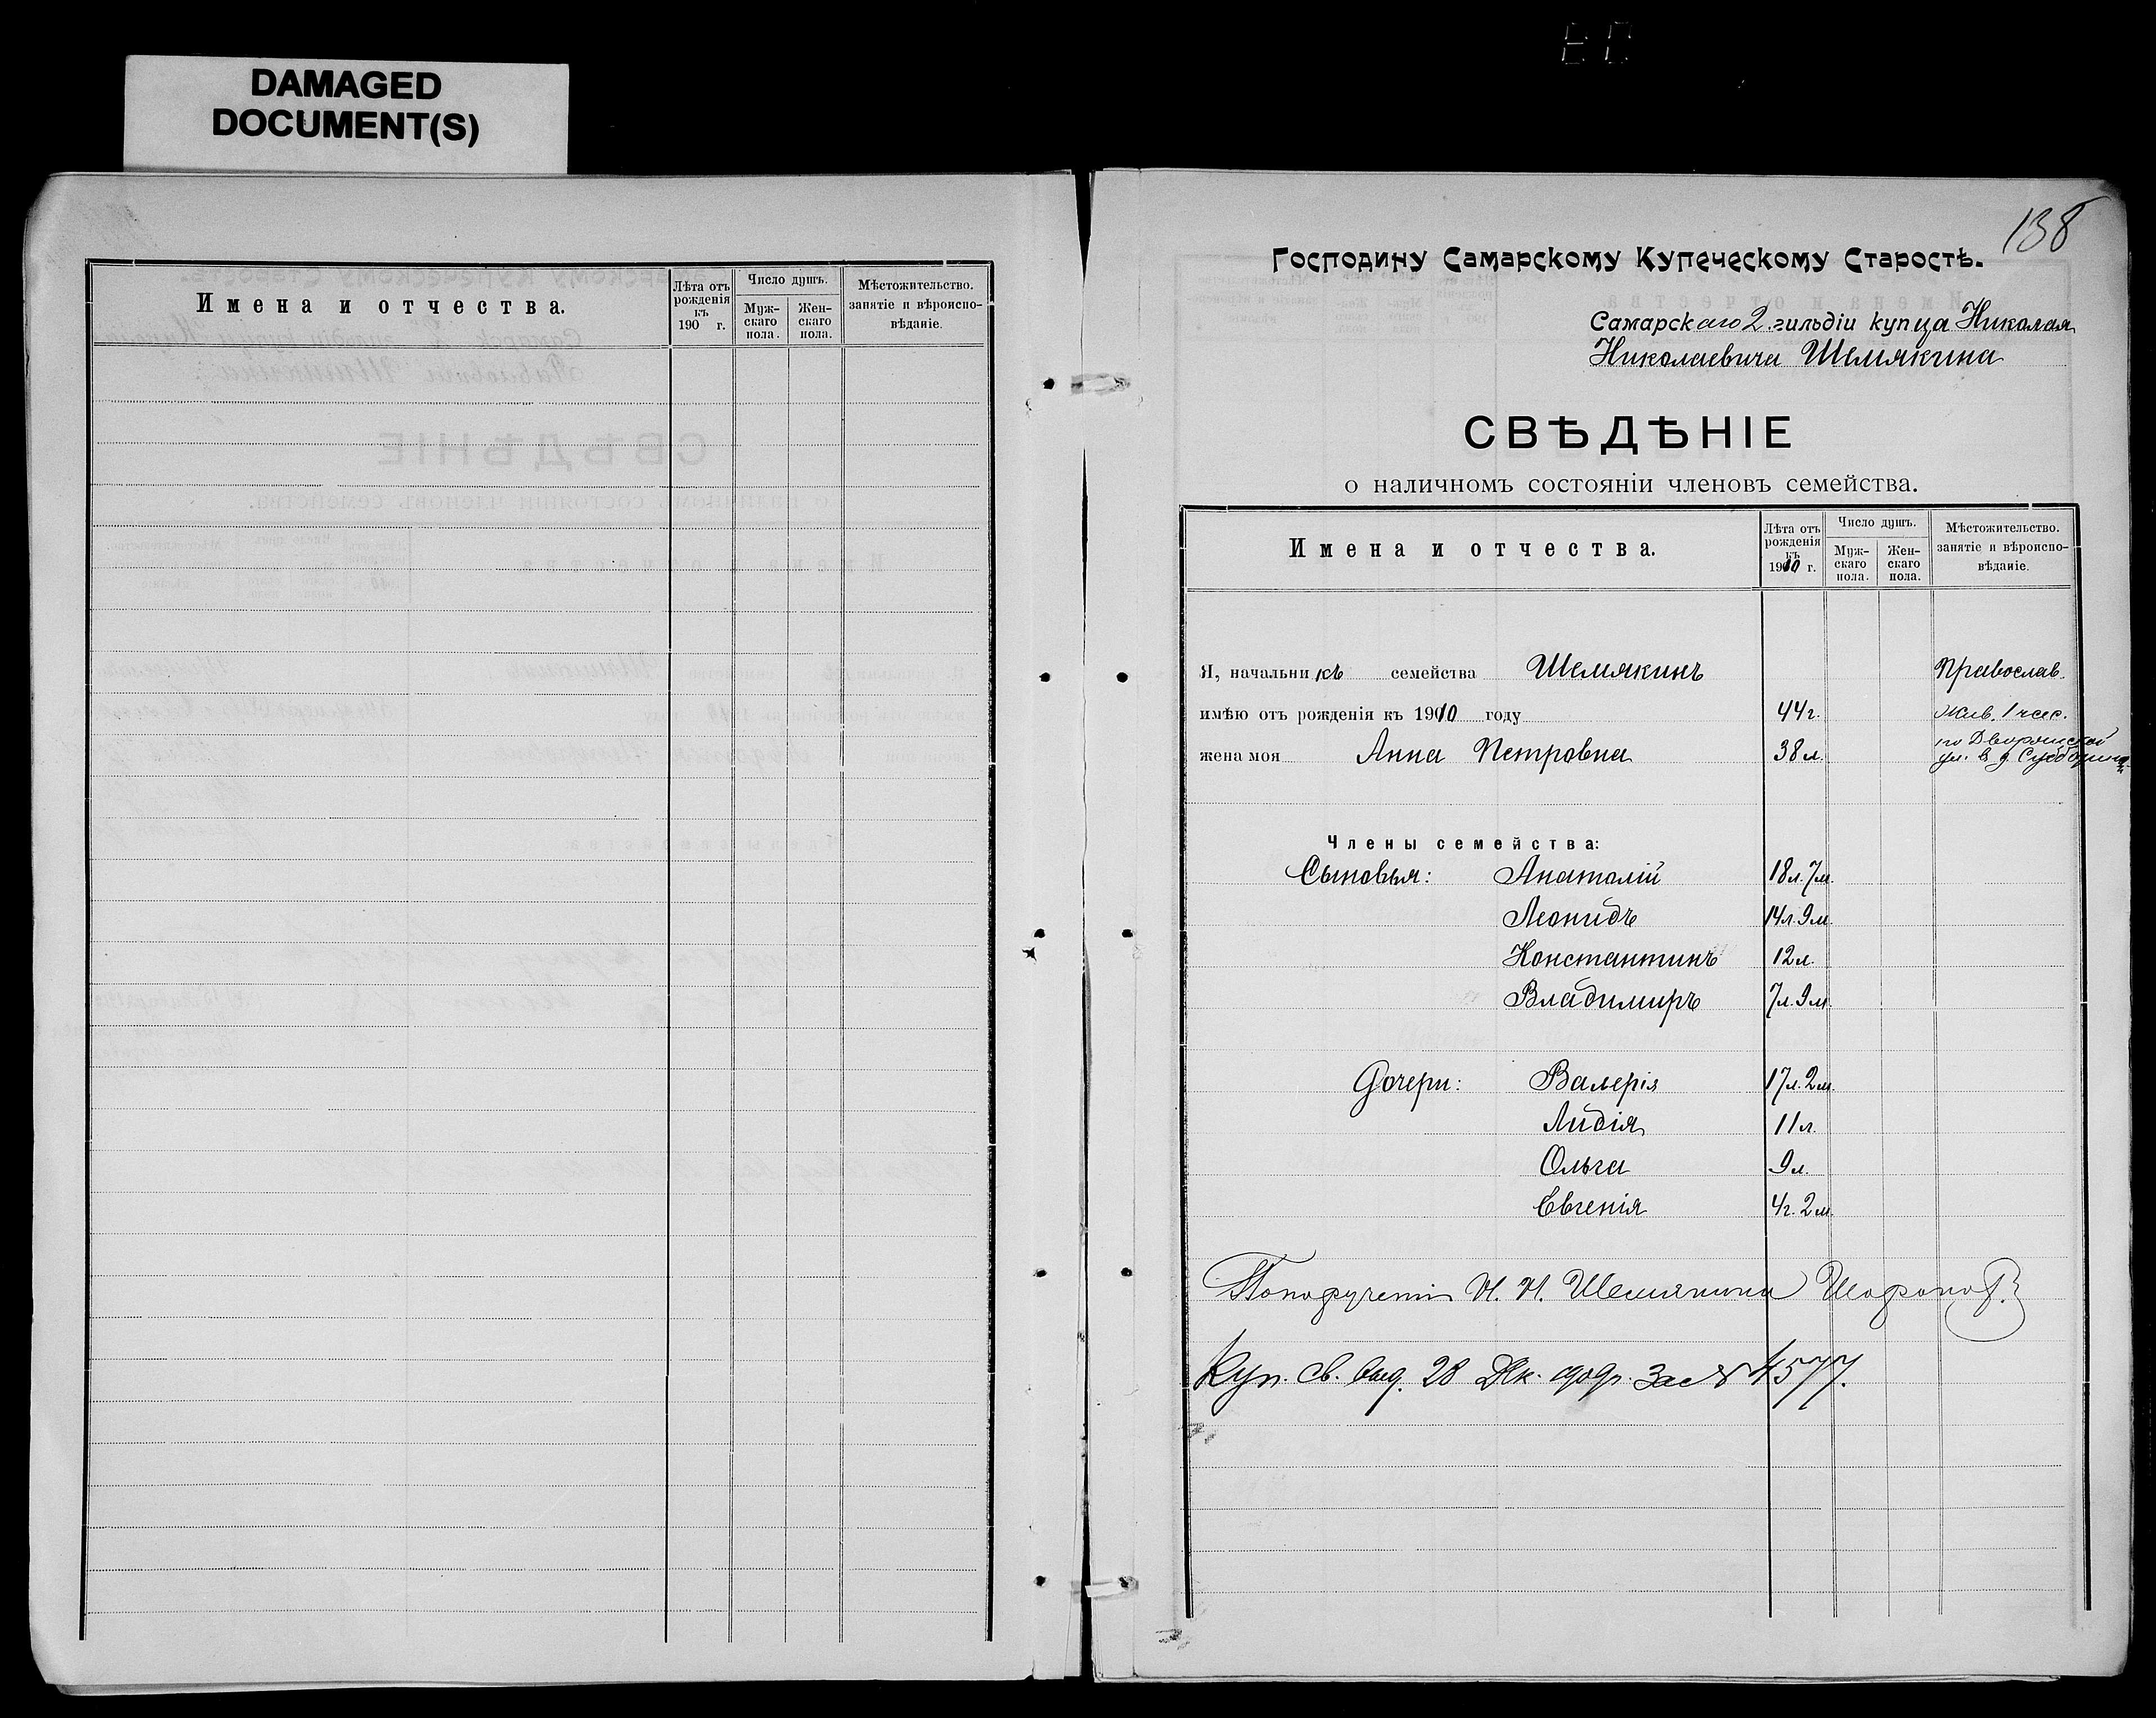 DAMAGED
DOCUMENT(S)
Имена и отчества.
Лѣта отъ
рожденія
къ
190 г.
Число душъ.
Муж-
скаго
пола.
Жен-
скаго
пола.
Мѣстожительство.
занятіе и вѣроиспо-
вѣданіе.
138
Господину Самарскому Купеческому Старостѣ.
Самарскаго 2 гильдіи купца Николая
Николаевича Шемякина
СВѢДѢНІЕ
о наличномъ состояніи членовъ семейства.
Имена и отчества.
Лѣта отъ
рожденія
къ
1910 г.
Число душъ.
Муж-
скаго
пола.
Жен-
скаго
пола.
Мѣстожительство.
занятіе и вѣроиспо-
вѣданіе.
Я, начальникъ семейства Шемякинъ Православ.
имѣю отъ рожденія къ 1910 году 44 г. Жив. 1 час.
жена моя Анна Петровна 38 л. по Дворянской
ул. в д. Субботина
Члены семейства:
Сыновья: Анатолій 18 л. 7 м.
Леонидъ 14 л. 9 м.
Константинъ 12 л.
Владимиръ 7 л. 9 м.
Дочери: Валерія 17 л. 2 м.
Лидія 11 л.
Ольга 9 л.
Евгенія 4 г. 2 м.
Н. Н. Шемякина
Куп. св. выд. 28 Дек. 1909 г. за № 4577.